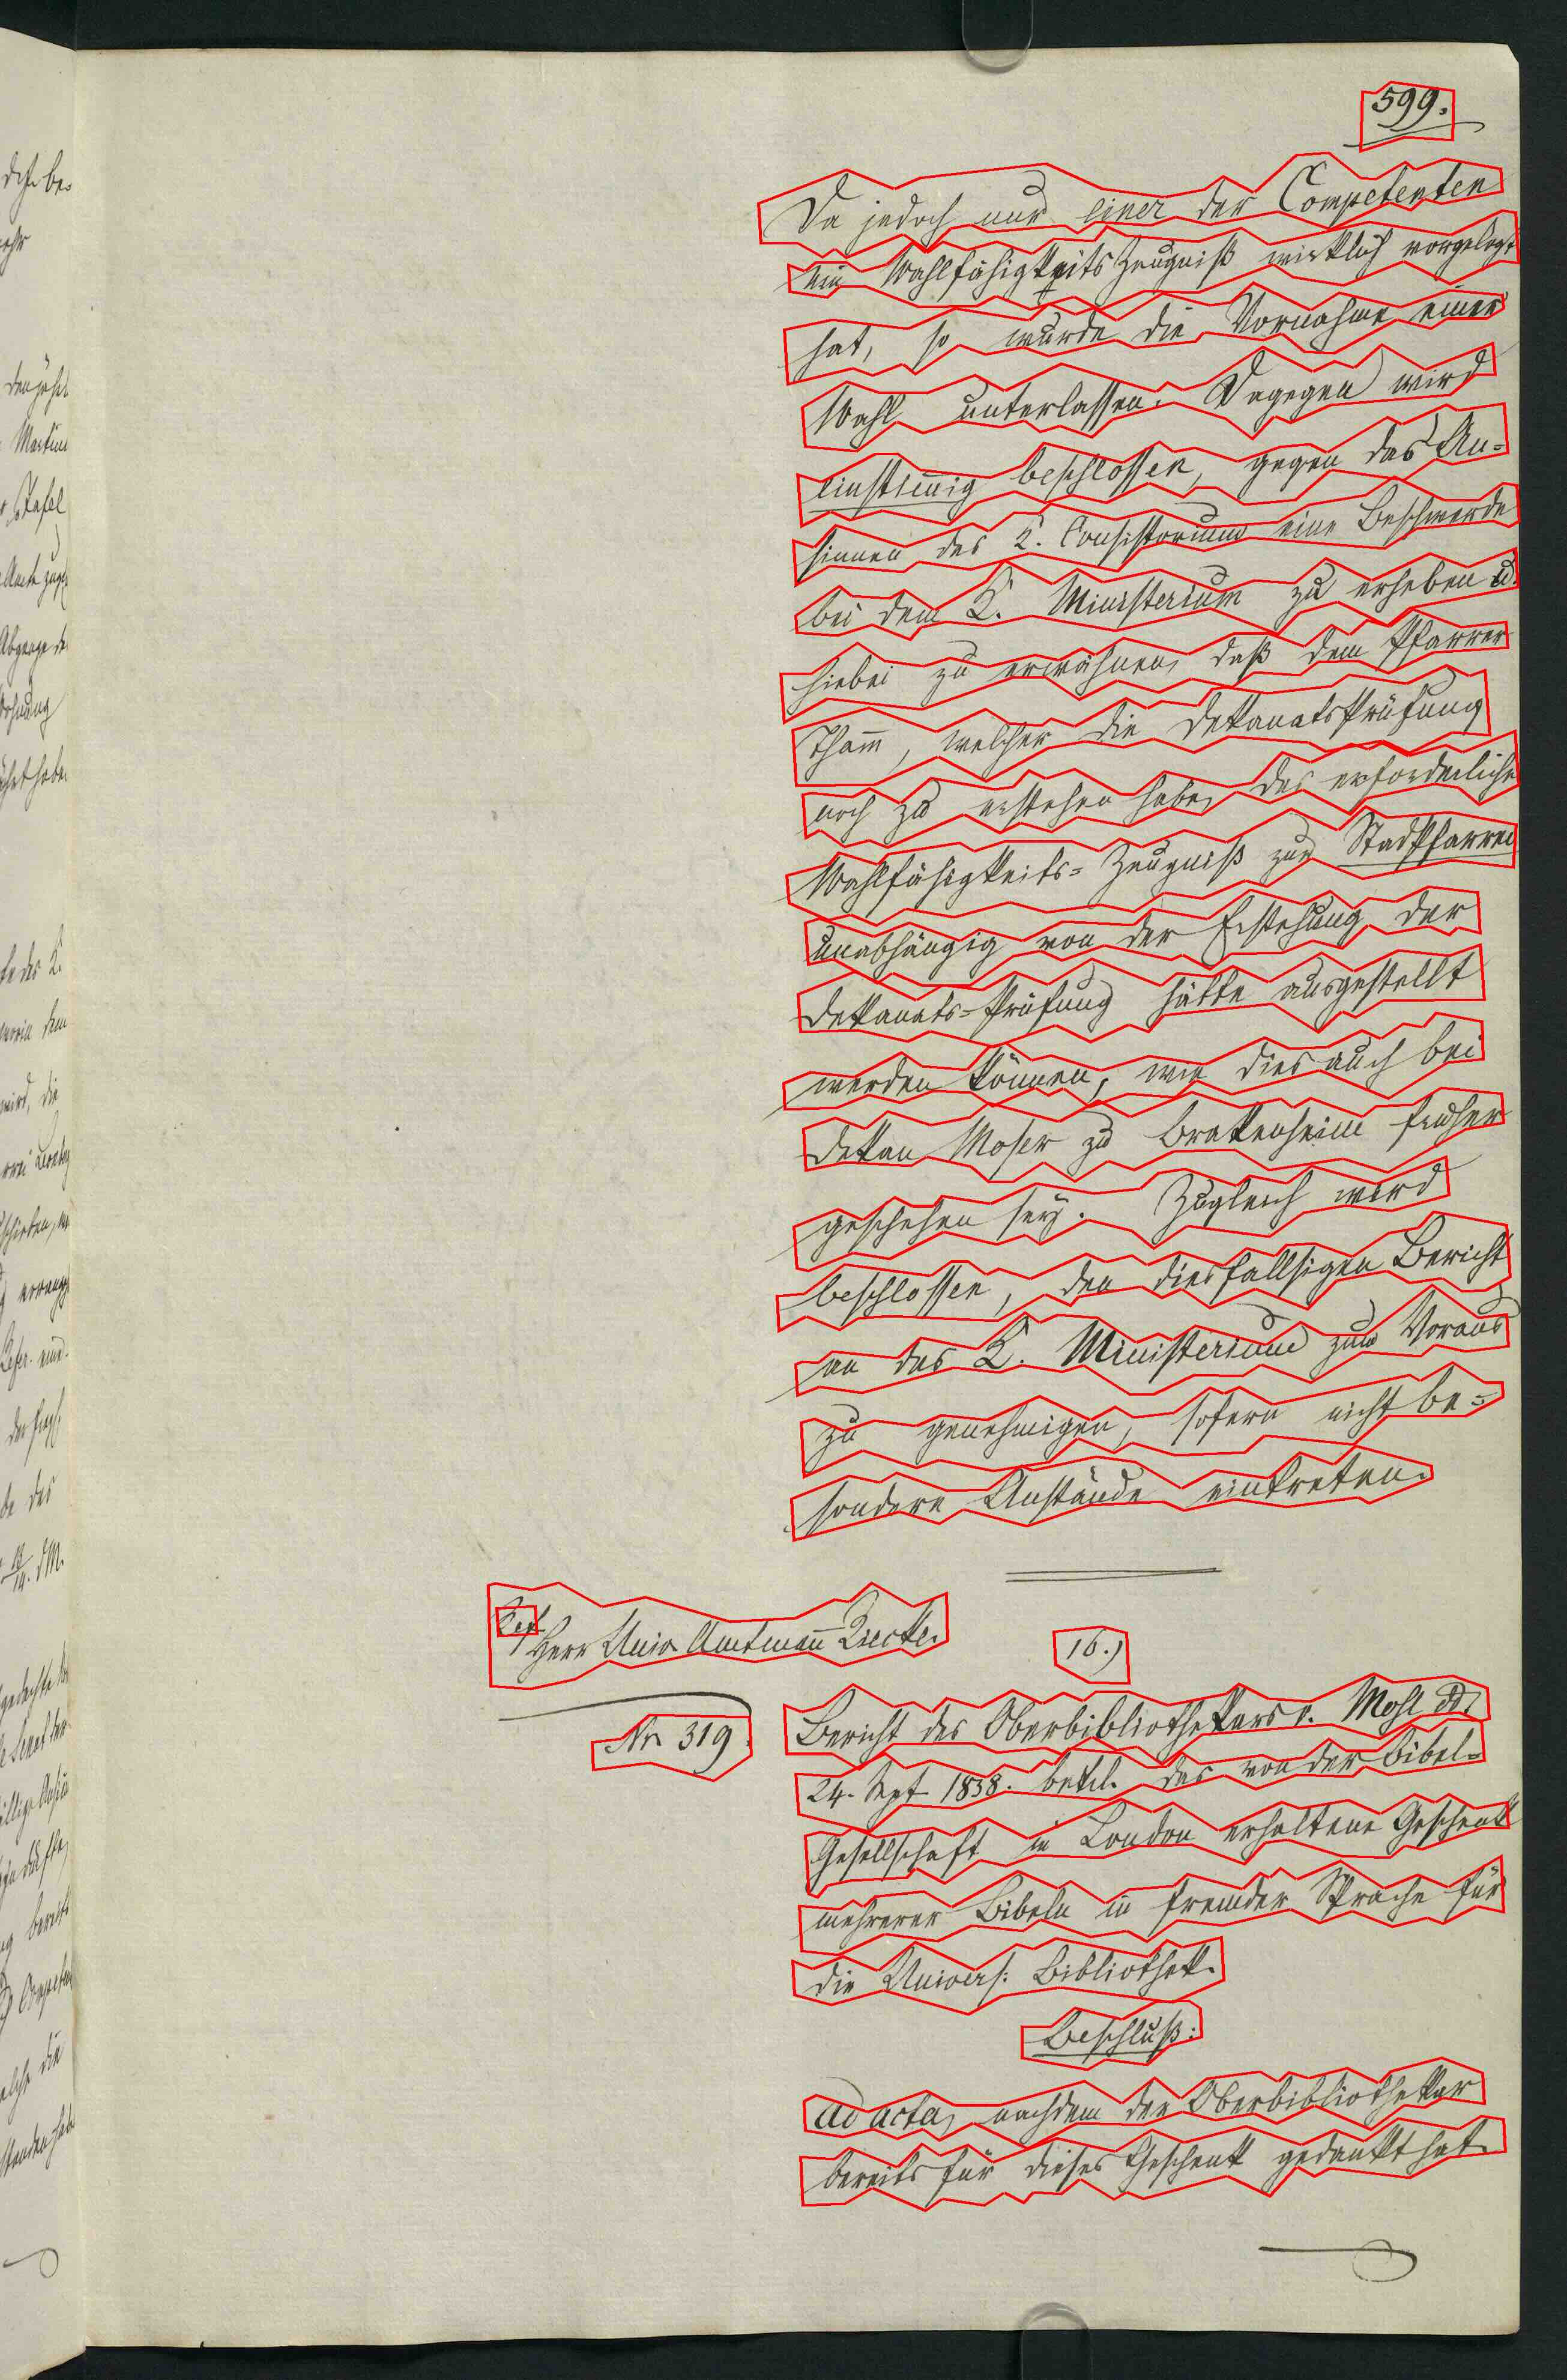 599.
Da jedoch nur einer der Competenten
ein Wahlfähigkeits Zeugniß wirklich vorgelegt
hat, so wurde die Vornahme einer
Wahl unterlassen. Dagegen wird
einstim̅ig beschlossen, gegen das An-
sinnen des K. Consistorium eine Beschwerde
bei dem K. Ministerium zu erheben u.
hiebei zu erwähnen, daß dem Pfarrer
Tham̅, welcher die Dekanatsprüfung
noch zu erstehen habe, das erforderliche
Wahlfähigkeits-Zeugniß zur Stadtpfarrei
unabhängig von der Erstehung der
Dekanats-Prüfung hätte ausgestellt
werden können, wie dies auch bei
Dekan Moser zu Brakenheim früher
geschehen sey. Zugleich wird
beschlossen, den diesfallsigen Bericht
an das K. Ministerium zum Voraus
zu genehmigen, sofern nicht be-
sondere Anstände eintreten.
Ref.
Herr Univ. Amtman̅
16.)
Nr 319.
Bericht des Oberbibliothekars v. Mohl dd.
24. Sept 1838. betr. das von der Bibel-
Gesellschaft in London erhaltene Geschenk
mehrerer Bibeln in fremder Sprache für
die Univers. Bibliothek.
Beschluß:
Ad acta, nachdem der Oberbibliothekar
bereits für dieses Geschenk gedankt hat.